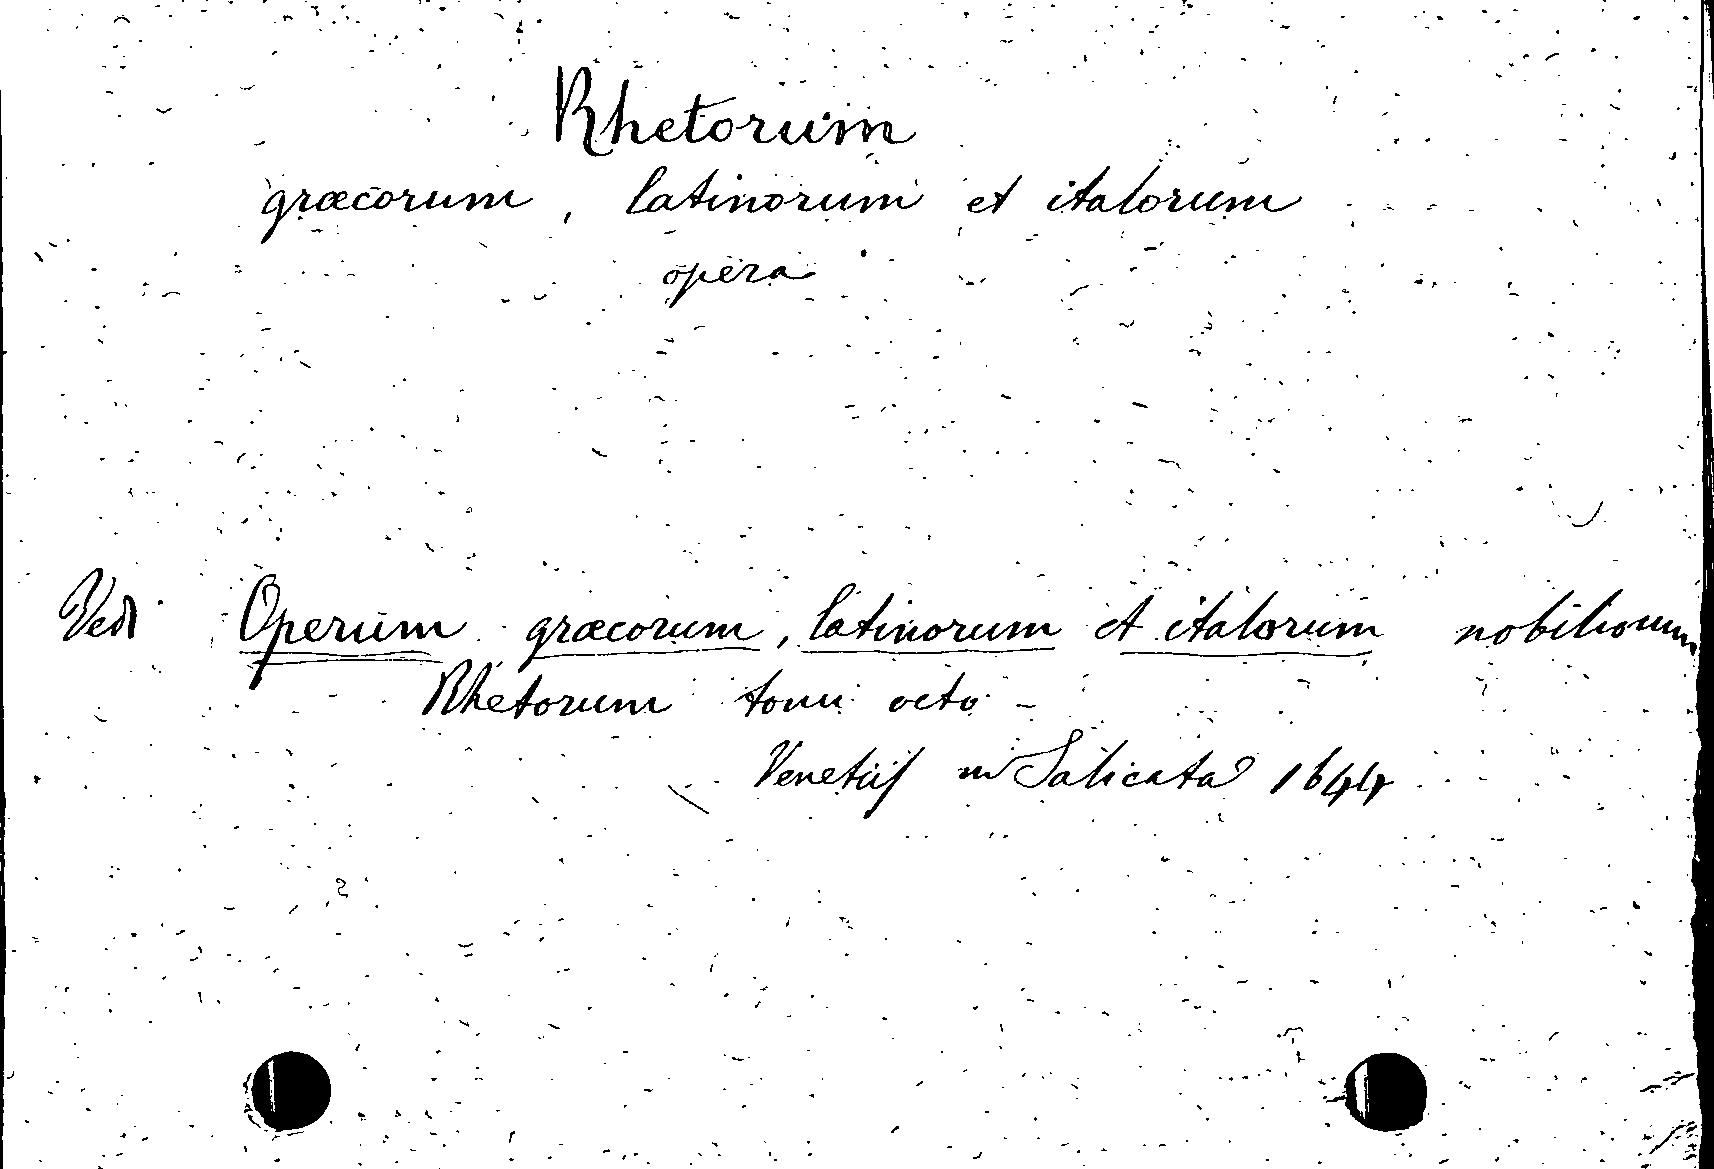 Rhetorum
græcorum, latinorum et italorum
opera
Vedi Operum græcorum, latinorum et italorum nobiliorum
Rhetorum tomi octo -
Venetiis in Salicata 1644